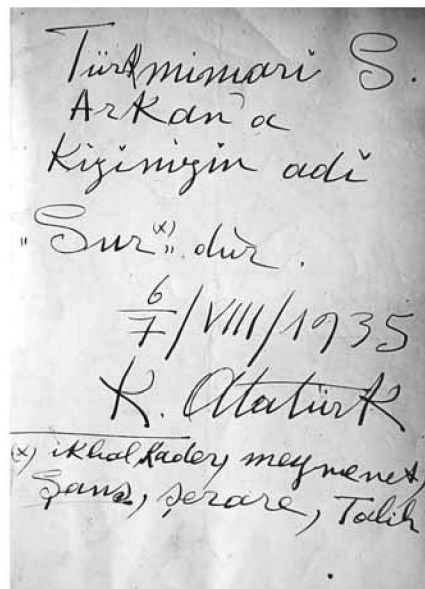 Türk mimarı S.
Arkan'a
Kızınızın adı
"Sur (x)" dur.
6/7/VIII/1935
K. Atatürk
(x) ikbal, kader, meymenet,
Şans, şerare, Talih